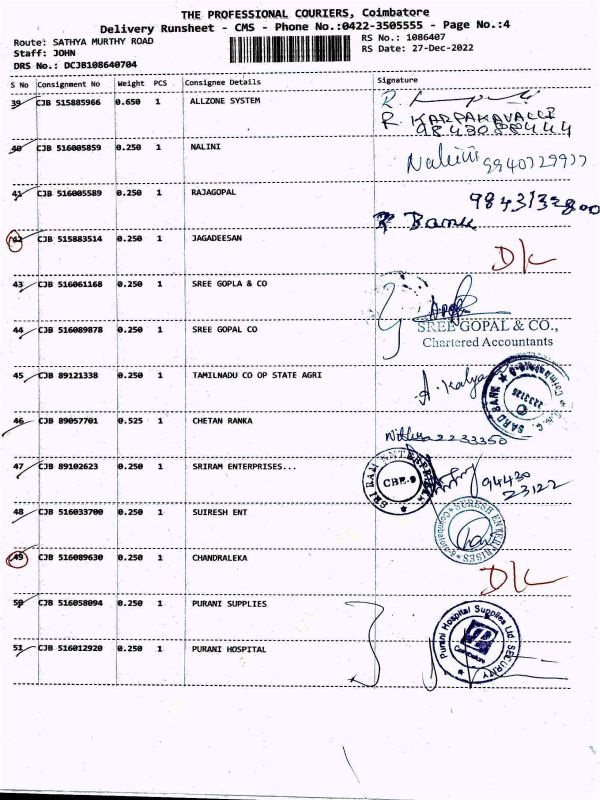 THE PROFESSIONAL COURIERS, Coimbatore
Delivery Runsheet - CMS - Phone No.:0422-3505555 - Page No.:4
Route: SATHYA MURTHY ROAD RS No.: 1086407
Staff: JOHN RS Date: 27-Dec-2022
DRS No.: DCJB108640704
S No Consignment No Weight PCS Consignee Details Signature
39 CJB 515885966 0.650 1 ALLZONE SYSTEM R.
R. KARPAKAVALLI
9843088444
40 CJB 516005859 0.250 1 NALINI Nalini 9940729977
41 CJB 516005589 0.250 1 RAJAGOPAL
R Banu
42 CJB 515883514 0.250 1 JAGADEESAN D/L
43 CJB 516061168 0.250 1 SREE GOPLA & CO
44 CJB 516089878 0.250 1 SREE GOPAL CO SREE GOPAL & CO.,
Chartered Accountants
45 CJB 89121338 0.250 1 TAMILNADU CO OP STATE AGRI A. Kalya
46 CJB 89057701 0.525 1 CHETAN RANKA 2233350
47 CJB 89102623 0.250 1 SRIRAM ENTERPRISES... SRI RAM ENTERPRISES CBE-9 94430
23122
48 CJB 516033700 0.250 1 SUIRESH ENT SURESH ENTERPRISES
49 CJB 516089630 0.250 1 CHANDRALEKA D/L
50 CJB 516058094 0.250 1 PURANI SUPPLIES
51 CJB 516012920 0.250 1 PURANI HOSPITAL Purani Hospital Supplies Ltd SECURITY Coimbatore